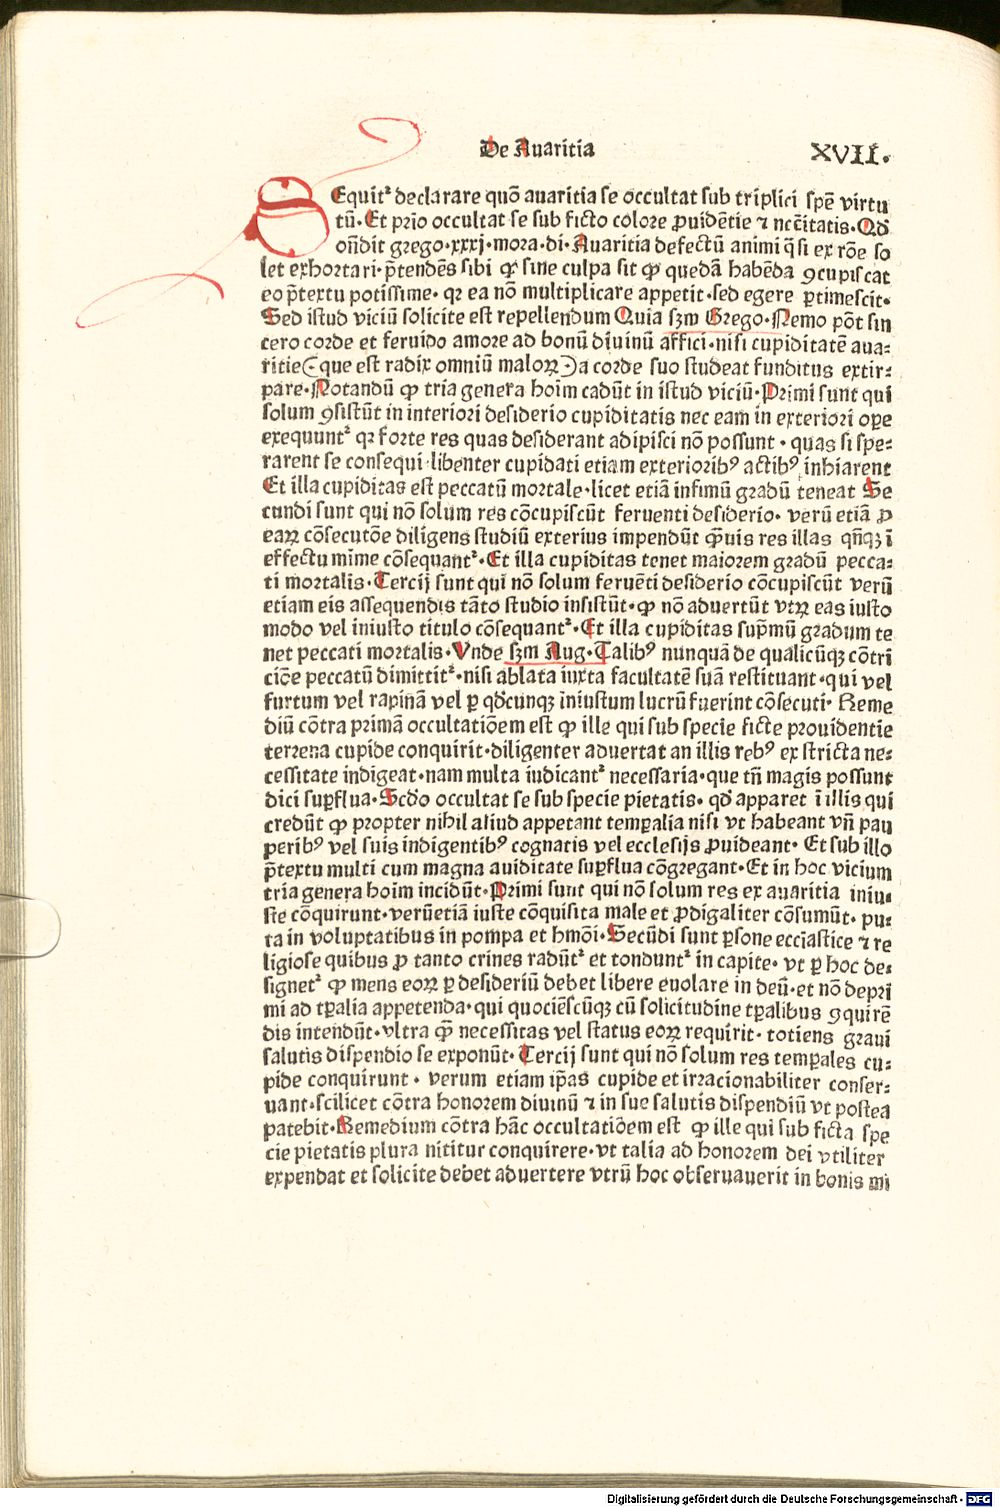 De Auaritia
XVII.
SEquitꝛ declarare quō auaritia se occultat sub triplici spē virtu
tū·Et prīo occultat se sub ficto colore ꝓuidētie ⁊ ncc̄itatis·Qd̄
oñdit grego·xxxj·mora·di·Auaritia defectū animi q̄si ex rōe so
let exhortari·p̄tendēs sibi ꝙ sine culpa sit ꝙ quedā habēda ꝯcupiscat
eo p̄textu potissime·qꝛ ea nō multiplicare appetit·sed egere ꝑtimescit·
Sed istud viciū solicite est repellendum Quia sꝫm Grego·Nemo pōt sin
cero corde et feruido amore ad bonū diuinū affici·nisi cupiditatē aua⸗
ritie(·que est radix omniū maloꝝ·)a corde suo studeat funditus extir⸗
pare·Notandū ꝙ tria genera hoīm cadūt in istud viciū·Primi sunt qui
solum ꝯsistūt in interiori desiderio cupiditatis nec eam in exteriori oꝑe
exequuntꝛ qꝛ forte res quas desiderant adipisci nō possunt·quas si spe⸗
rarent se consequi·libenter cupidati etiam exterioribꝰ actibꝰ inhiarent
Et illa cupiditas est peccatū mortale·licet etiā infimū gradū teneat Se
cundi sunt qui nō solum res cōcupiscūt feruenti desiderio·verū etiā ꝓ
eaꝝ cōsecutōe diligens studiū exterius impendūt q̄uis res illas qn̄qꝫ ī
effectu mīme cōsequantꝛ·Et illa cupiditas tenet maiorem gradū pecca⸗
ti mortalis·Tercij sunt qui nō solum feruēti desiderio cōcupiscūt verū
etiam eis assequendis tāto studio insistūt·ꝙ nō aduertūt vtꝝ eas iusto
modo vel iniusto titulo cōsequantꝛ·Et illa cupiditas sup̄mū gradum te
net peccati mortalis·Vnde sꝫm Aug·Talibꝰ nunquā de qualicūqꝫ cōtri
ciōe peccatū dimittitꝛ·nisi ablata iuxta facultatē suā restituant·qui vel
furtum vel rapinā vel ꝑ qd̄cunqꝫ iniustum lucrū fuerint cōsecuti·Reme
diū cōtra primā occultatiōem est ꝙ ille qui sub specie ficte prouidentie
terrena cupide conquirit·diligenter aduertat an illis rebꝰ ex stricta ne⸗
cessitate indigeat·nam multa iudicantꝛ necessaria·que tn̄ magis possunt
dici suꝑflua·Scd̄o occultat se sub specie pietatis·qd̄ apparet ī illis qui
credūt ꝙ propter nihil aliud appetant temꝑalia nisi vt habeant vn̄ pau
peribꝰ vel suis indigentibꝰ cognatis vel ecclesijs ꝓuideant·Et sub illo
p̄textu multi cum magna auiditate suꝑflua cōgregant·Et in hoc vicium
tria genera hoīm incidūt·Primi sunt qui nō solum res ex auaritia iniu⸗
ste cōquirunt·verūetiā iuste cōquisita male et ꝓdigaliter cōsumūt·pu⸗
ta in voluptatibus in pompa et hmōi·Secūdi sunt ꝑsone ecciastice ⁊ re
ligiose quibus ꝓ tanto crines radūtꝛ et tonduntꝛ in capite·vt ꝑ hoc de⸗
signetꝛ ꝙ mens eoꝝ ꝑ desideriū debet libere euolare in deū·et nō depri
mi ad tꝑalia appetenda·qui quociēscūqꝫ cū solicitudine tꝑalibus ꝯquirē
dis intendūt·vltra q̄ necessitas vel status eoꝝ requirit·totiens graui
salutis dispendio se exponūt·Tercij sunt qui nō solum res temꝑales cu⸗
pide conquirunt·verum etiam ip̄as cupide et irracionabiliter conser⸗
uant·scilicet cōtra honorem diuinū ⁊ in sue salutis dispendiū vt postea
patebit·Remedium cōtra hāc occultatiōem est ꝙ ille qui sub ficta spe
cie pietatis plura nititur conquirere·vt talia ad honorem dei vtiliter
expendat et solicite debet aduertere vtrū hoc obseruauerit in bonis mi
Digitalisierung gefördert durch die Deutsche Forschungsgemeinschaft - DFG